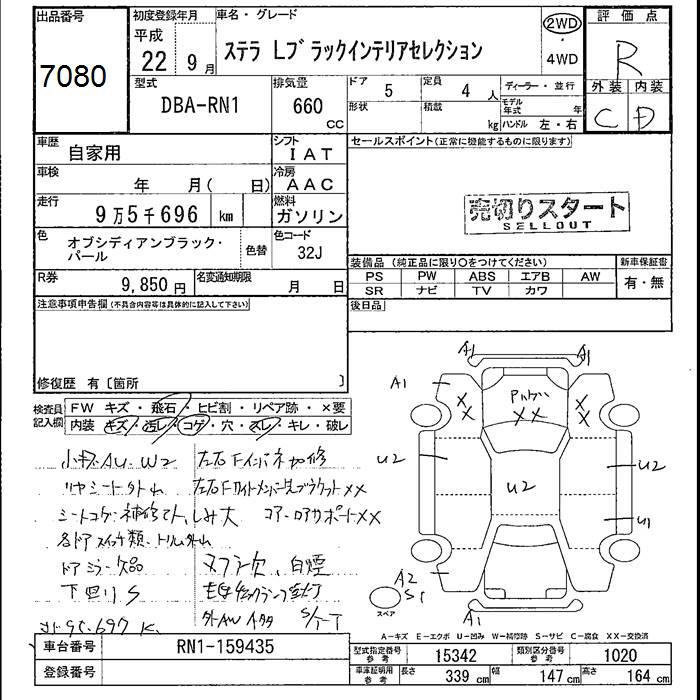 出品番号
7080
初度登録年月
平成
22年 9月
車名・グレード
ステラ Lブラックインテリアセレクション
2WD
・
4WD
評価点
R
外装 内装
C D
型式
DBA-RN1
排気量
660 cc
ドア 5
定員 4人
形状
積載 kg
ディーラー・並行
モデル年式 年
ハンドル 左・右
車歴
自家用
シフト
IAT
セールスポイント(正常に機能するものに限ります)
車検
年 月( 日)
冷房
AAC
売切りスタート
SELLOUT
走行
9万5千696 km
燃料
ガソリン
色
オブシディアンブラック・パール
色替
色コード
32J
装備品(純正品に限り○をつけてください)
新車保証書
PS PW ABS エアB AW
有・無
SR ナビ TV カワ
R券
9,850円
名変通知期限
月 日
後日品
注意事項申告欄(不具合内容等は具体的に記入して下さい)
修復歴 有〔箇所 〕
検査員記入欄
FW キズ・飛石・ヒビ割・リペア跡・×要
内装 キズ・汚レ・コゲ・穴・スレ・キレ・破レ
小キズAU.W2
リヤシート外ム
シートコゲ・補修てん、しみ大
各ドアスイッチ類、トリム外ム
ドアミラー欠品
下回りS
左右Fインパネ加修
コアーロアサポートXX
マフラー欠、白煙
A1 A1
A1
XX XX
XX
U2 U2
U2
U1
A2
S1
A1
スペア
A-キズ E-エクボ U-凹み W-補修跡 S-サビ C-腐食 XX-交換済
車台番号
RN1-159435
登録番号
型式指定番号 参考
15342
類別区分番号 参考
1020
車庫証明用 参考
長さ 339 cm
幅 147 cm
高さ 164 cm